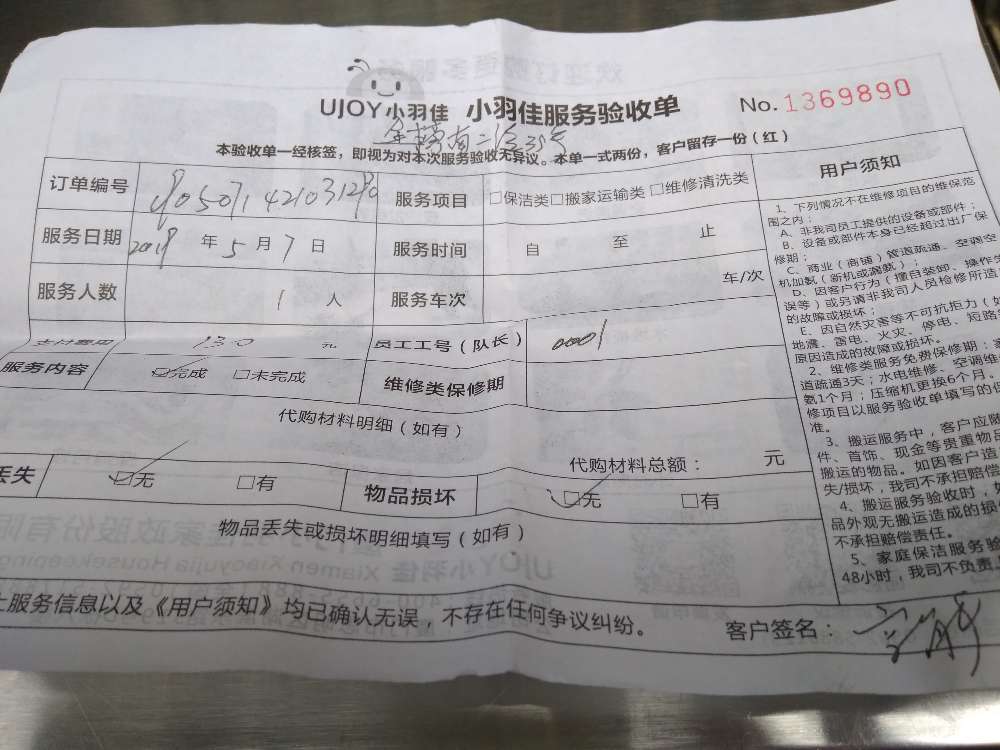 UJOY小羽佳 小羽佳服务验收单 No. 1369890
本验收单一经核签，即视为对本次服务验收无异议。本单一式两份，客户留存一份（红）
订单编号 服务项目 □保洁类□搬家运输类□维修清洗类
服务日期 2019 年 5 月 7 日 服务时间 自 至 止
服务人数 1 人 服务车次 车/次
支付费用 130 元 员工工号（队长） 0001
服务内容 ☑完成 □未完成 维修类保修期
代购材料明细（如有）
代购材料总额： 元
丢失 ☑无 □有 物品损坏 ☑无 □有
物品丢失或损坏明细填写（如有）
服务信息以及《用户须知》均已确认无误，不存在任何争议纠纷。
客户签名：
用户须知
1、下列情况不在维修项目的维保范
围之内：
A、非我司员工提供的设备或部件；
B、设备或部件本身已经超过出厂保
修期；
C、商业（商铺）管道疏通、空调空
机加氨（新机或漏氨）；
D、因客户行为（擅自装卸、操作失
误等）或另请非我司人员检修所造
的故障或损坏；
E、因自然灾害等不可抗拒力（如
地震、雷电、火灾、停电、短路
原因造成的故障或损坏。
2、维修类服务免费保修期：家
道疏通3天；水电维修、空调维
氨1个月；压缩机更换6个月。
修项目以服务验收单填写的保
准。
3、搬运服务中，客户应随
件、首饰、现金等贵重物品
搬运的物品。如因客户造
失/损坏，我司不承担赔偿
4、搬运服务验收时，如
品外观无搬运造成的损
不承担赔偿责任。
5、家庭保洁服务验
48小时，我司不负责